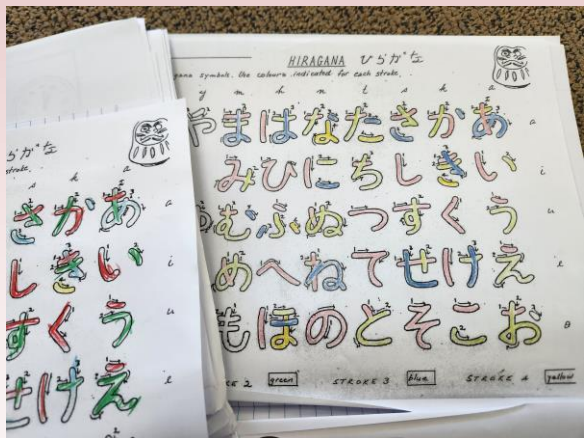 HIRAGANA ひらがな
gana symbols. Use colours indicated for each stroke.
y m h n t s k a
や ま は な た さ か あ a
み ひ に ち し き い i
ゆ む ふ ぬ つ す く う u
め へ ね て せ け え e
も ほ の と そ こ お o
STROKE 2 green STROKE 3 blue STROKE 4 yellow
らがな
stroke.
s k a
さ か あ a
し き い i
す く う u
せ け え e